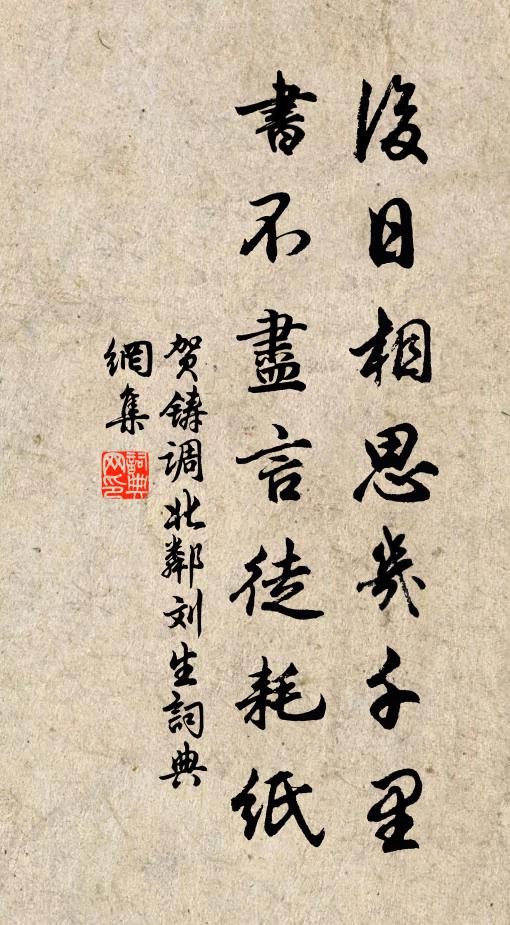 後日相思幾千里
書不盡言徒耗紙
贺鑄调北鄰刘生詞典
網集
詞典
网印